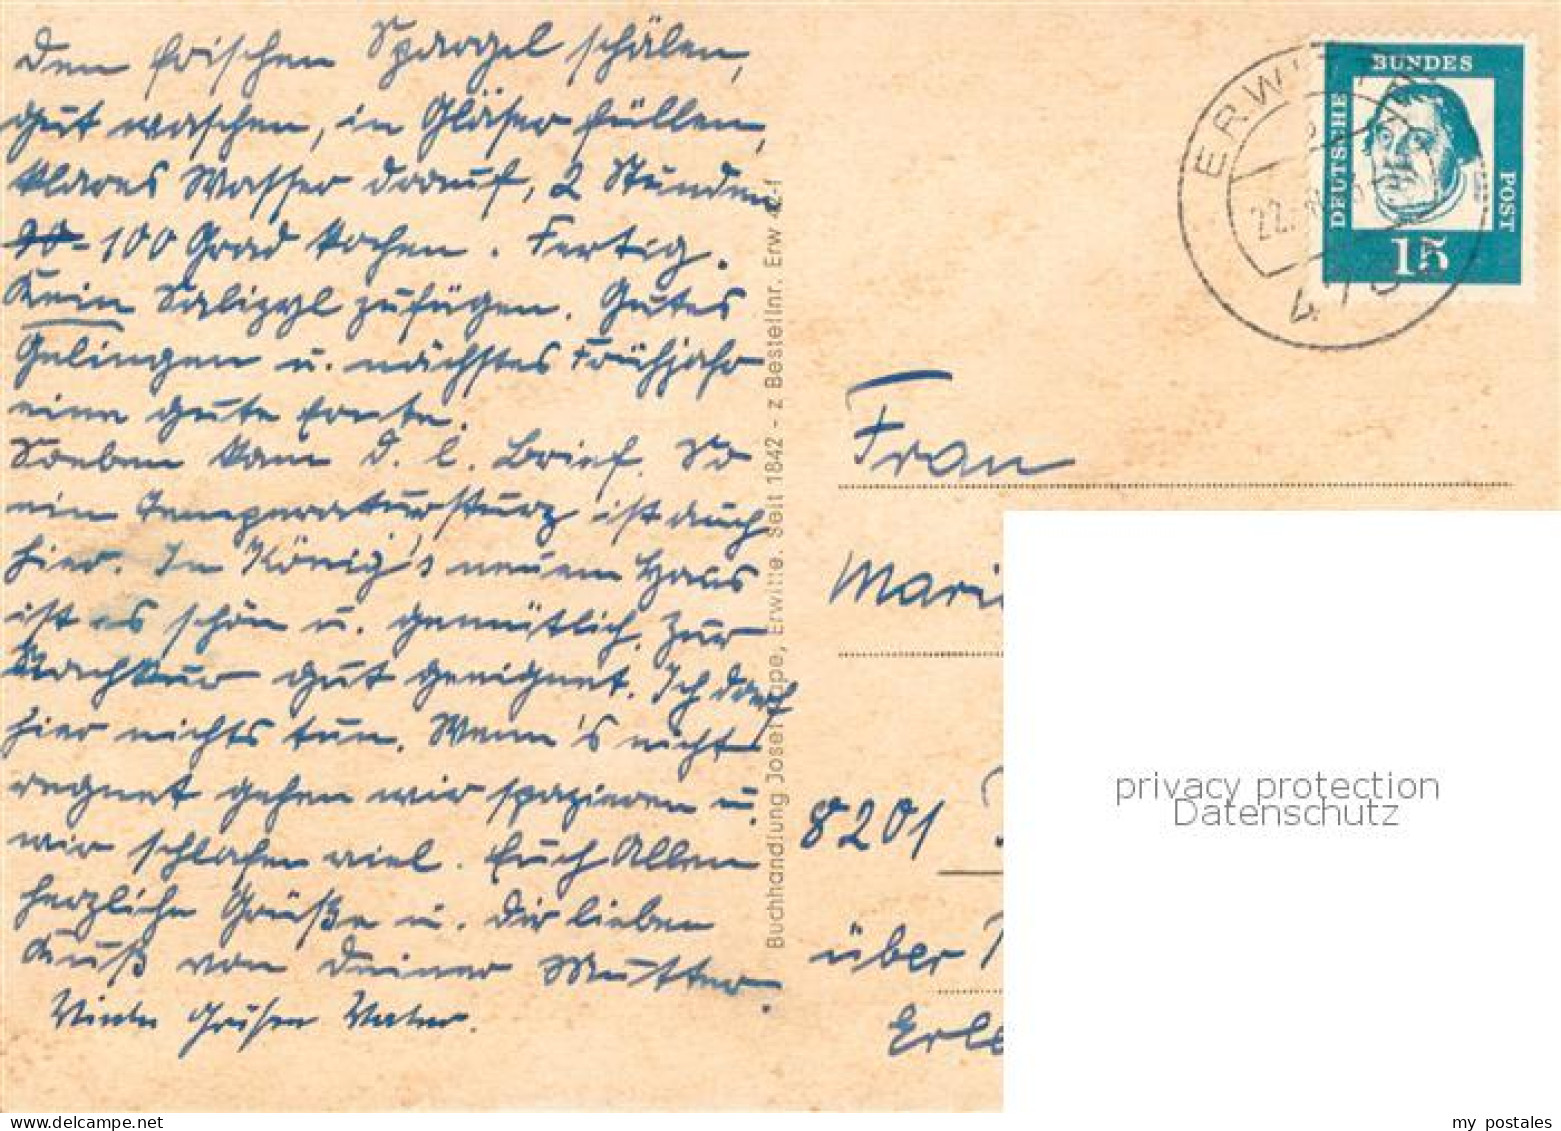 Den frischen Spargel schälen,
gut waschen, in Gläser füllen,
klares Wasser darauf, 2 Stunden
90- 100 Grad kochen. Fertig.
Kein Salizyl zufügen. Gutes
Gelingen u. nächstes Frühjahr
eine gute Ernte.
Soeben kam d. l. Brief. So
ein Temperatursturz ist auch
hier. In König's neuem Haus
ist es schön u. gemütlich, zur
Nachkur gut geeignet. Ich darf
hier nichts tun. Wenn's nicht
regnet gehen wir spazieren u.
wir schlafen viel. Euch Allen
herzliche Grüße u. Dir lieben
Kuß von Deiner Mutter.
Viele Grüße Vater.
Buchhandlung Josef Pape, Erwitte. Seit 1842 - z Bestellnr. Erw 42-f
ERWITTE
22.
478
DEUTSCHE
BUNDES
POST
15
Frau
Mari
8201
über
Erle
privacy protection
Datenschutz
my postales